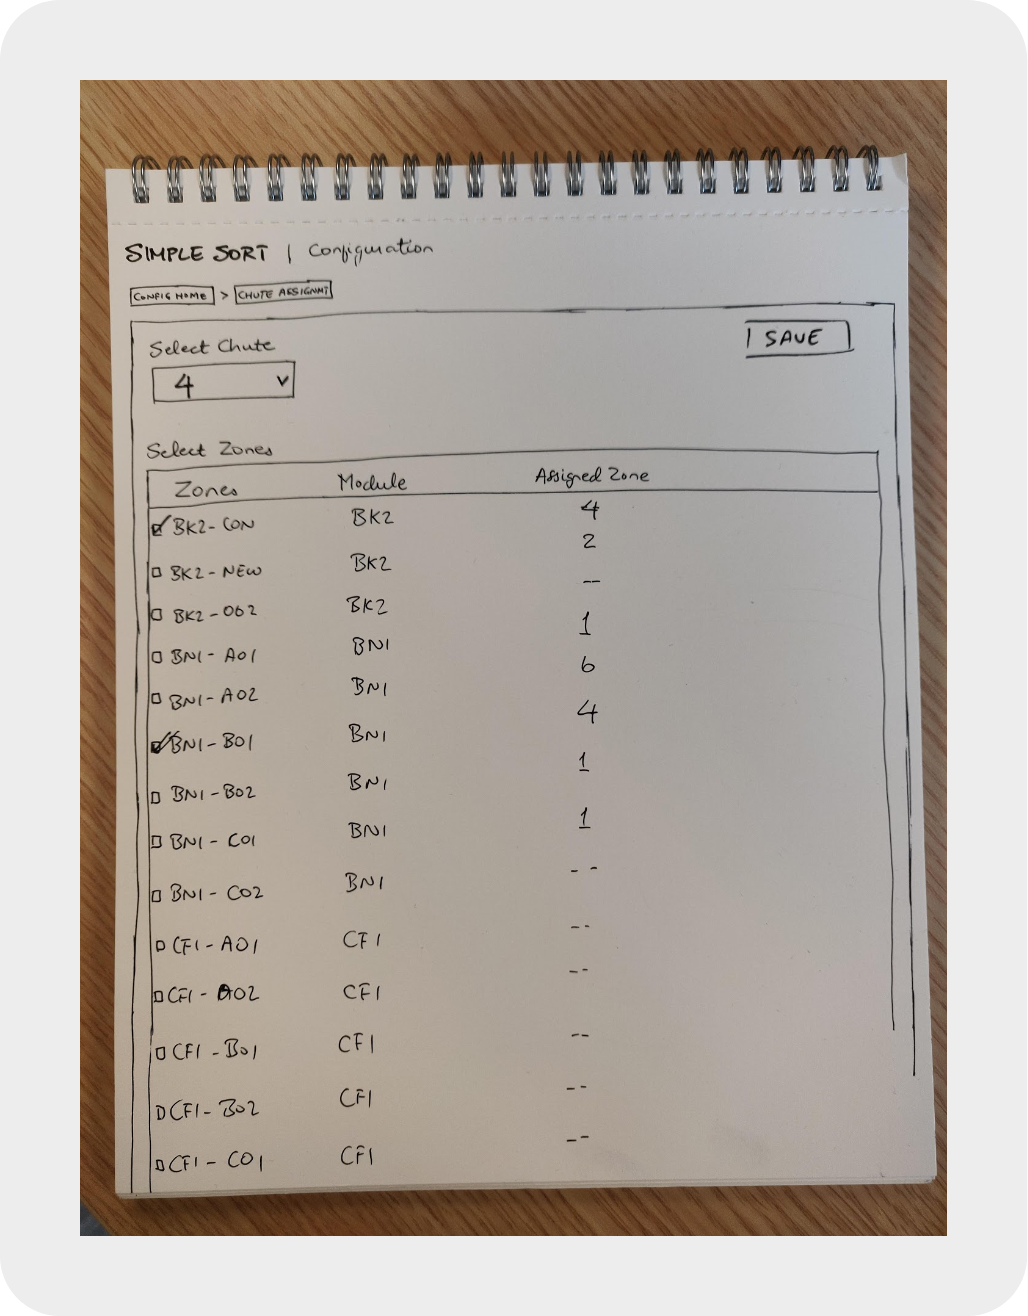 SIMPLE SORT | Configuration
CONFIG HOME > CHUTE ASSIGNMT
Select Chute
SAVE
4
Select Zones
Zones Module Assigned Zone
BK2-CON BK2 4
BK2-NEW BK2 2
BK2-OG2 BK2 --
BN1-A01 BN1 1
BN1-A02 BN1 6
BN1-B01 BN1 4
BN1-B02 BN1 1
BN1-C01 BN1 1
BN1-C02 BN1 --
CF1-A01 CF1 --
CF1-A02 CF1 --
CF1-B01 CF1 --
CF1-B02 CF1 --
CF1-C01 CF1 --